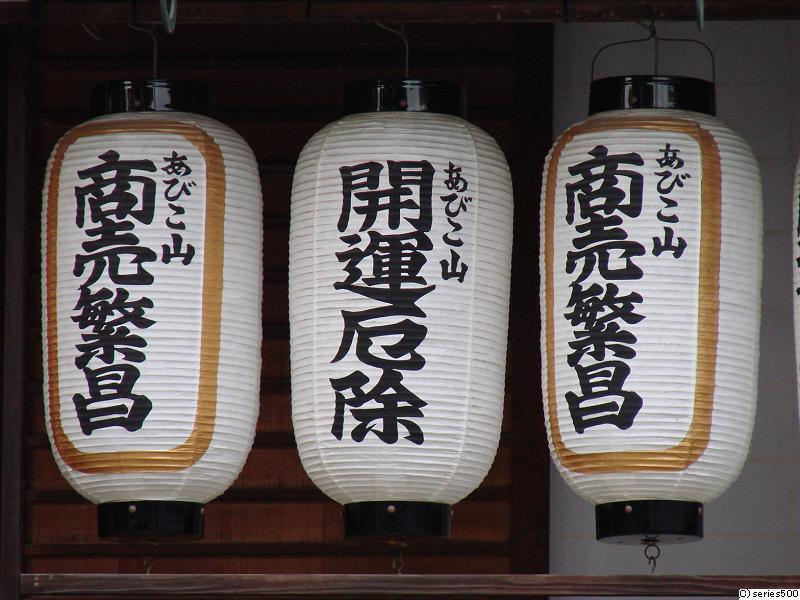 あびこ山
商売繁昌
あびこ山
開運厄除
あびこ山
商売繁昌
(C) series500